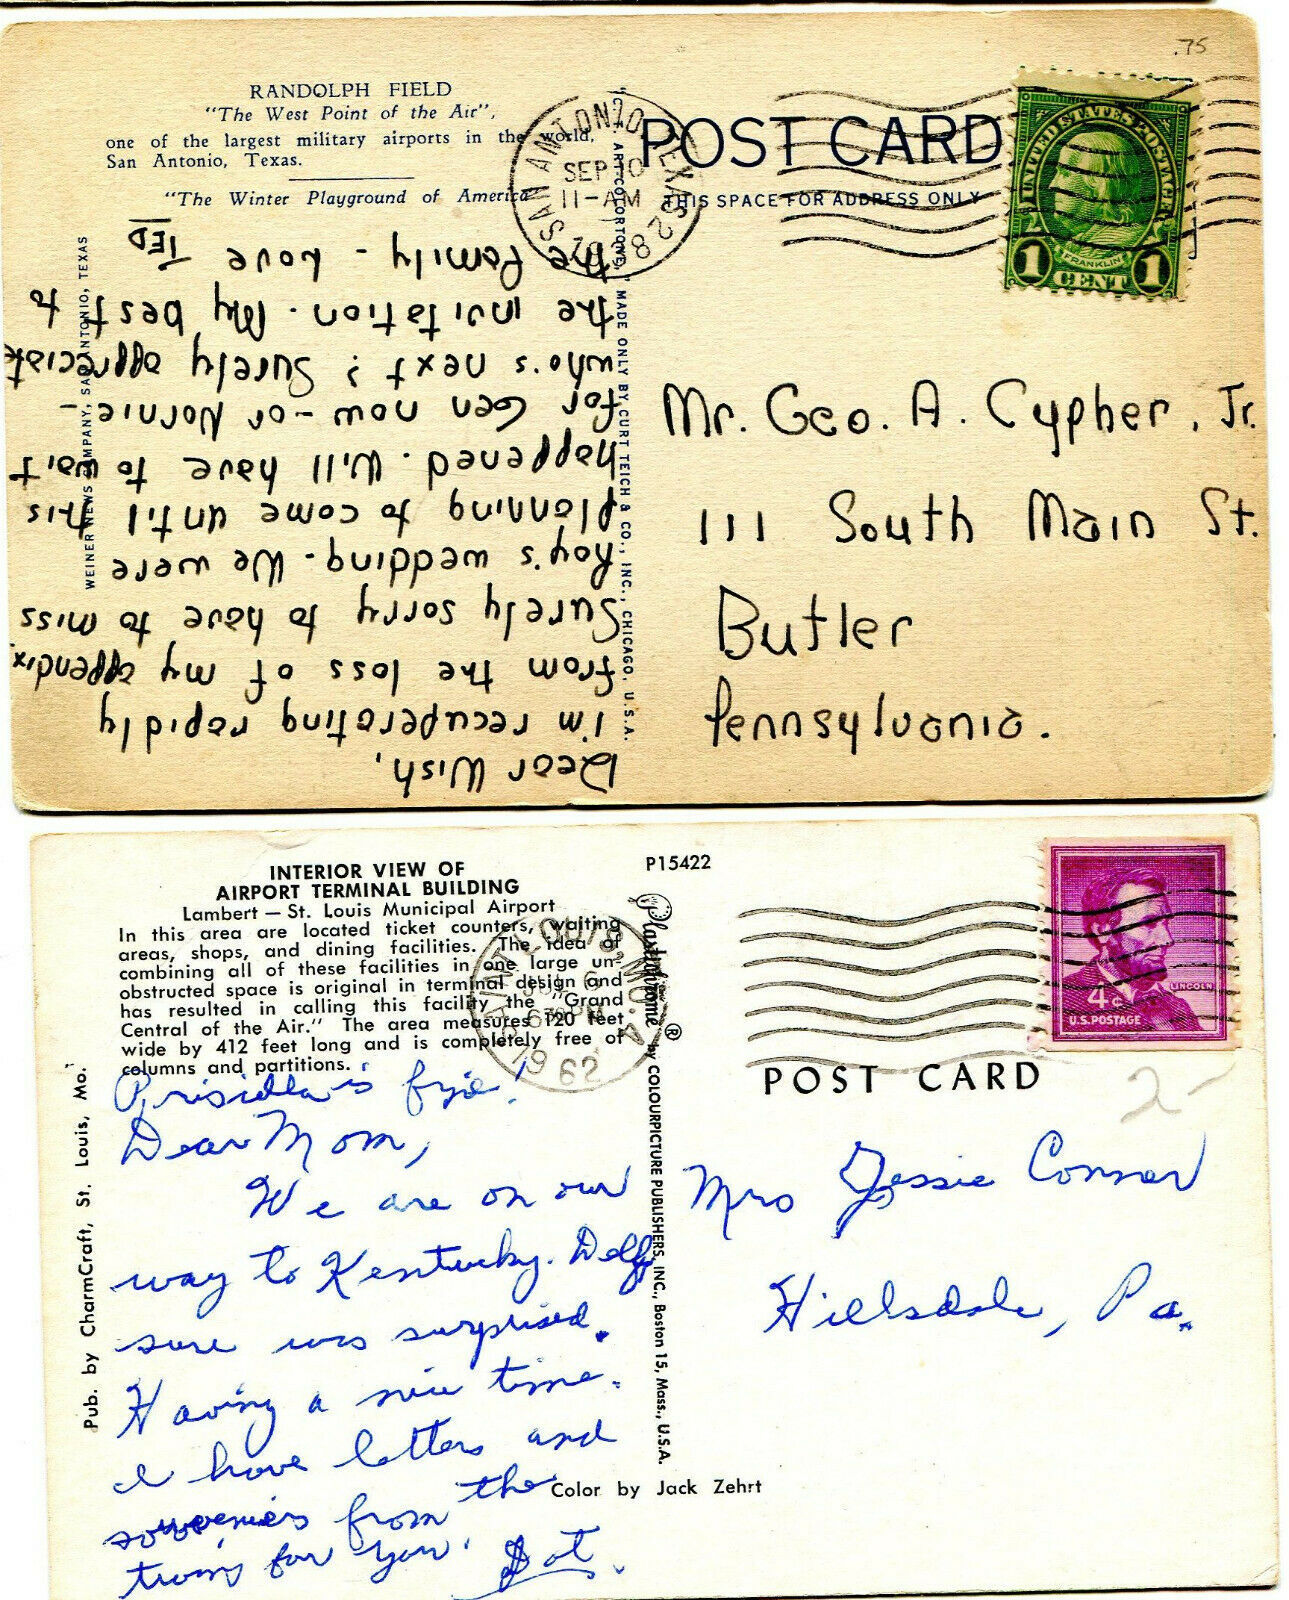 .75
RANDOLPH FIELD
"The West Point of the Air",
one of the largest military airports in the world,
San Antonio, Texas.
"The Winter Playground of America"
SAN ANTONIO, TEXAS 28
SEP 10
11-AM
POST CARD
THIS SPACE FOR ADDRESS ONLY
UNITED STATES POSTAGE
FRANKLIN
1 CENT 1
WEINER NEWS COMPANY, SAN ANTONIO, TEXAS
"ART-COLORTONE," MADE ONLY BY CURT TEICH & CO., INC., CHICAGO, U.S.A.
Dear Wish,
i'm recuperating rapidly
from the loss of my appendix.
Surely sorry to have to miss
Roy's wedding. We were
planning to come until this
happened. Will have to wait
for Gen now - or Normie -
who's next? Surely appreciate
the invitation. My best to
the family - Love
TED
Mr. Geo. A. Cypher, Jr.
111 South Main St.
Butler
Pennsylvania.
INTERIOR VIEW OF
AIRPORT TERMINAL BUILDING
Lambert — St. Louis Municipal Airport
In this area are located ticket counters, waiting
areas, shops, and dining facilities. The idea of
combining all of these facilities in one large un-
obstructed space is original in terminal design and
has resulted in calling this facility the "Grand
Central of the Air." The area measures 120 feet
wide by 412 feet long and is completely free of
columns and partitions.
P15422
Plastichrome ® by COLOURPICTURE PUBLISHERS, INC., Boston 15, Mass., U.S.A.
SAINT LOUIS, MO.
6
PM
1962
4¢
LINCOLN
U.S. POSTAGE
POST CARD
2-
Pub. by CharmCraft, St. Louis, Mo.
Prisidla is fyie!
Dear Mom,
We are on our
way to Kentucky. Delf
sure was surprised.
Having a nice time.
I have letters and
souveniers from the
twins for you.
Dot.
Mrs Jessie Connor
Hillsdale, Pa.
Color by Jack Zehrt